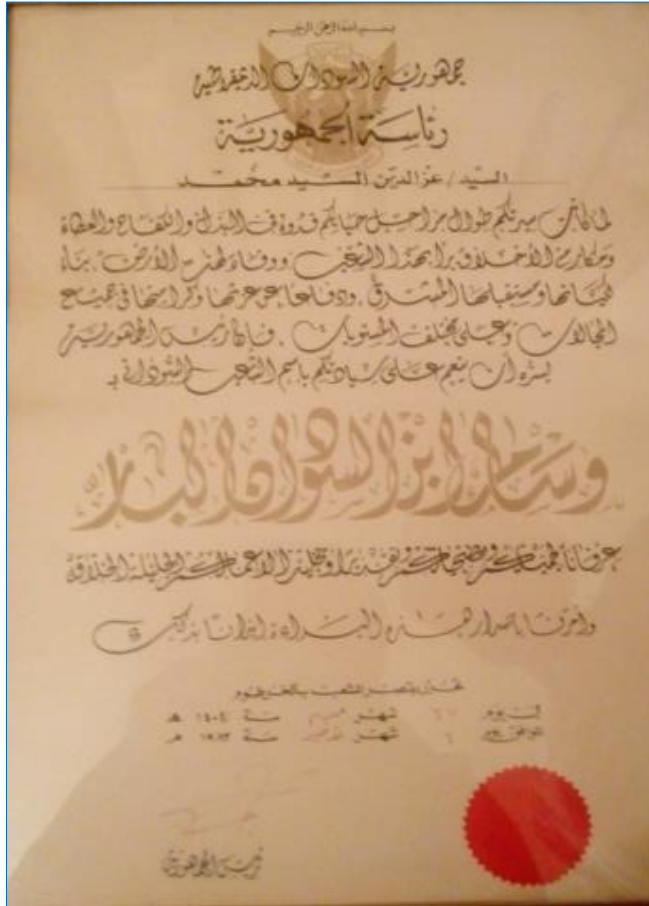 بسم الله الرحمن الرحيم
جمهورية السودان الديمقراطية
رئاسة الجمهورية
السيد / عز الدين السيد محمد
لما كانت سيرتكم طوال مراحل حياتكم قدوة في البذل والكفاح والعطاء
ومكارم الأخلاق برا بهذا الشعب ووفاء لهذه الأرض بناء
لكيانها ومستقبلها المشرق . ودفاعا عن عزتها وكرامتها في جميع
المجالات وعلى مختلف المستويات . فإن رئيس الجمهورية
يسره أن ينعم على سيادتكم باسم الشعب السوداني بـ
وسام ابن السودان البار
عرفانا لجهادكم وتضحياتكم وتقديرا وتخليدا لأعمالكم الجليلة الخلاقة
وأمرنا باصدار هذه البراءة ايذانا بذلك
بقصر الشعب بالخرطوم
اليوم شهر سنة ١٤٠٤ هـ
الموافق يوم شهر سنة ١٩٨٣ م
رئيس الجمهورية